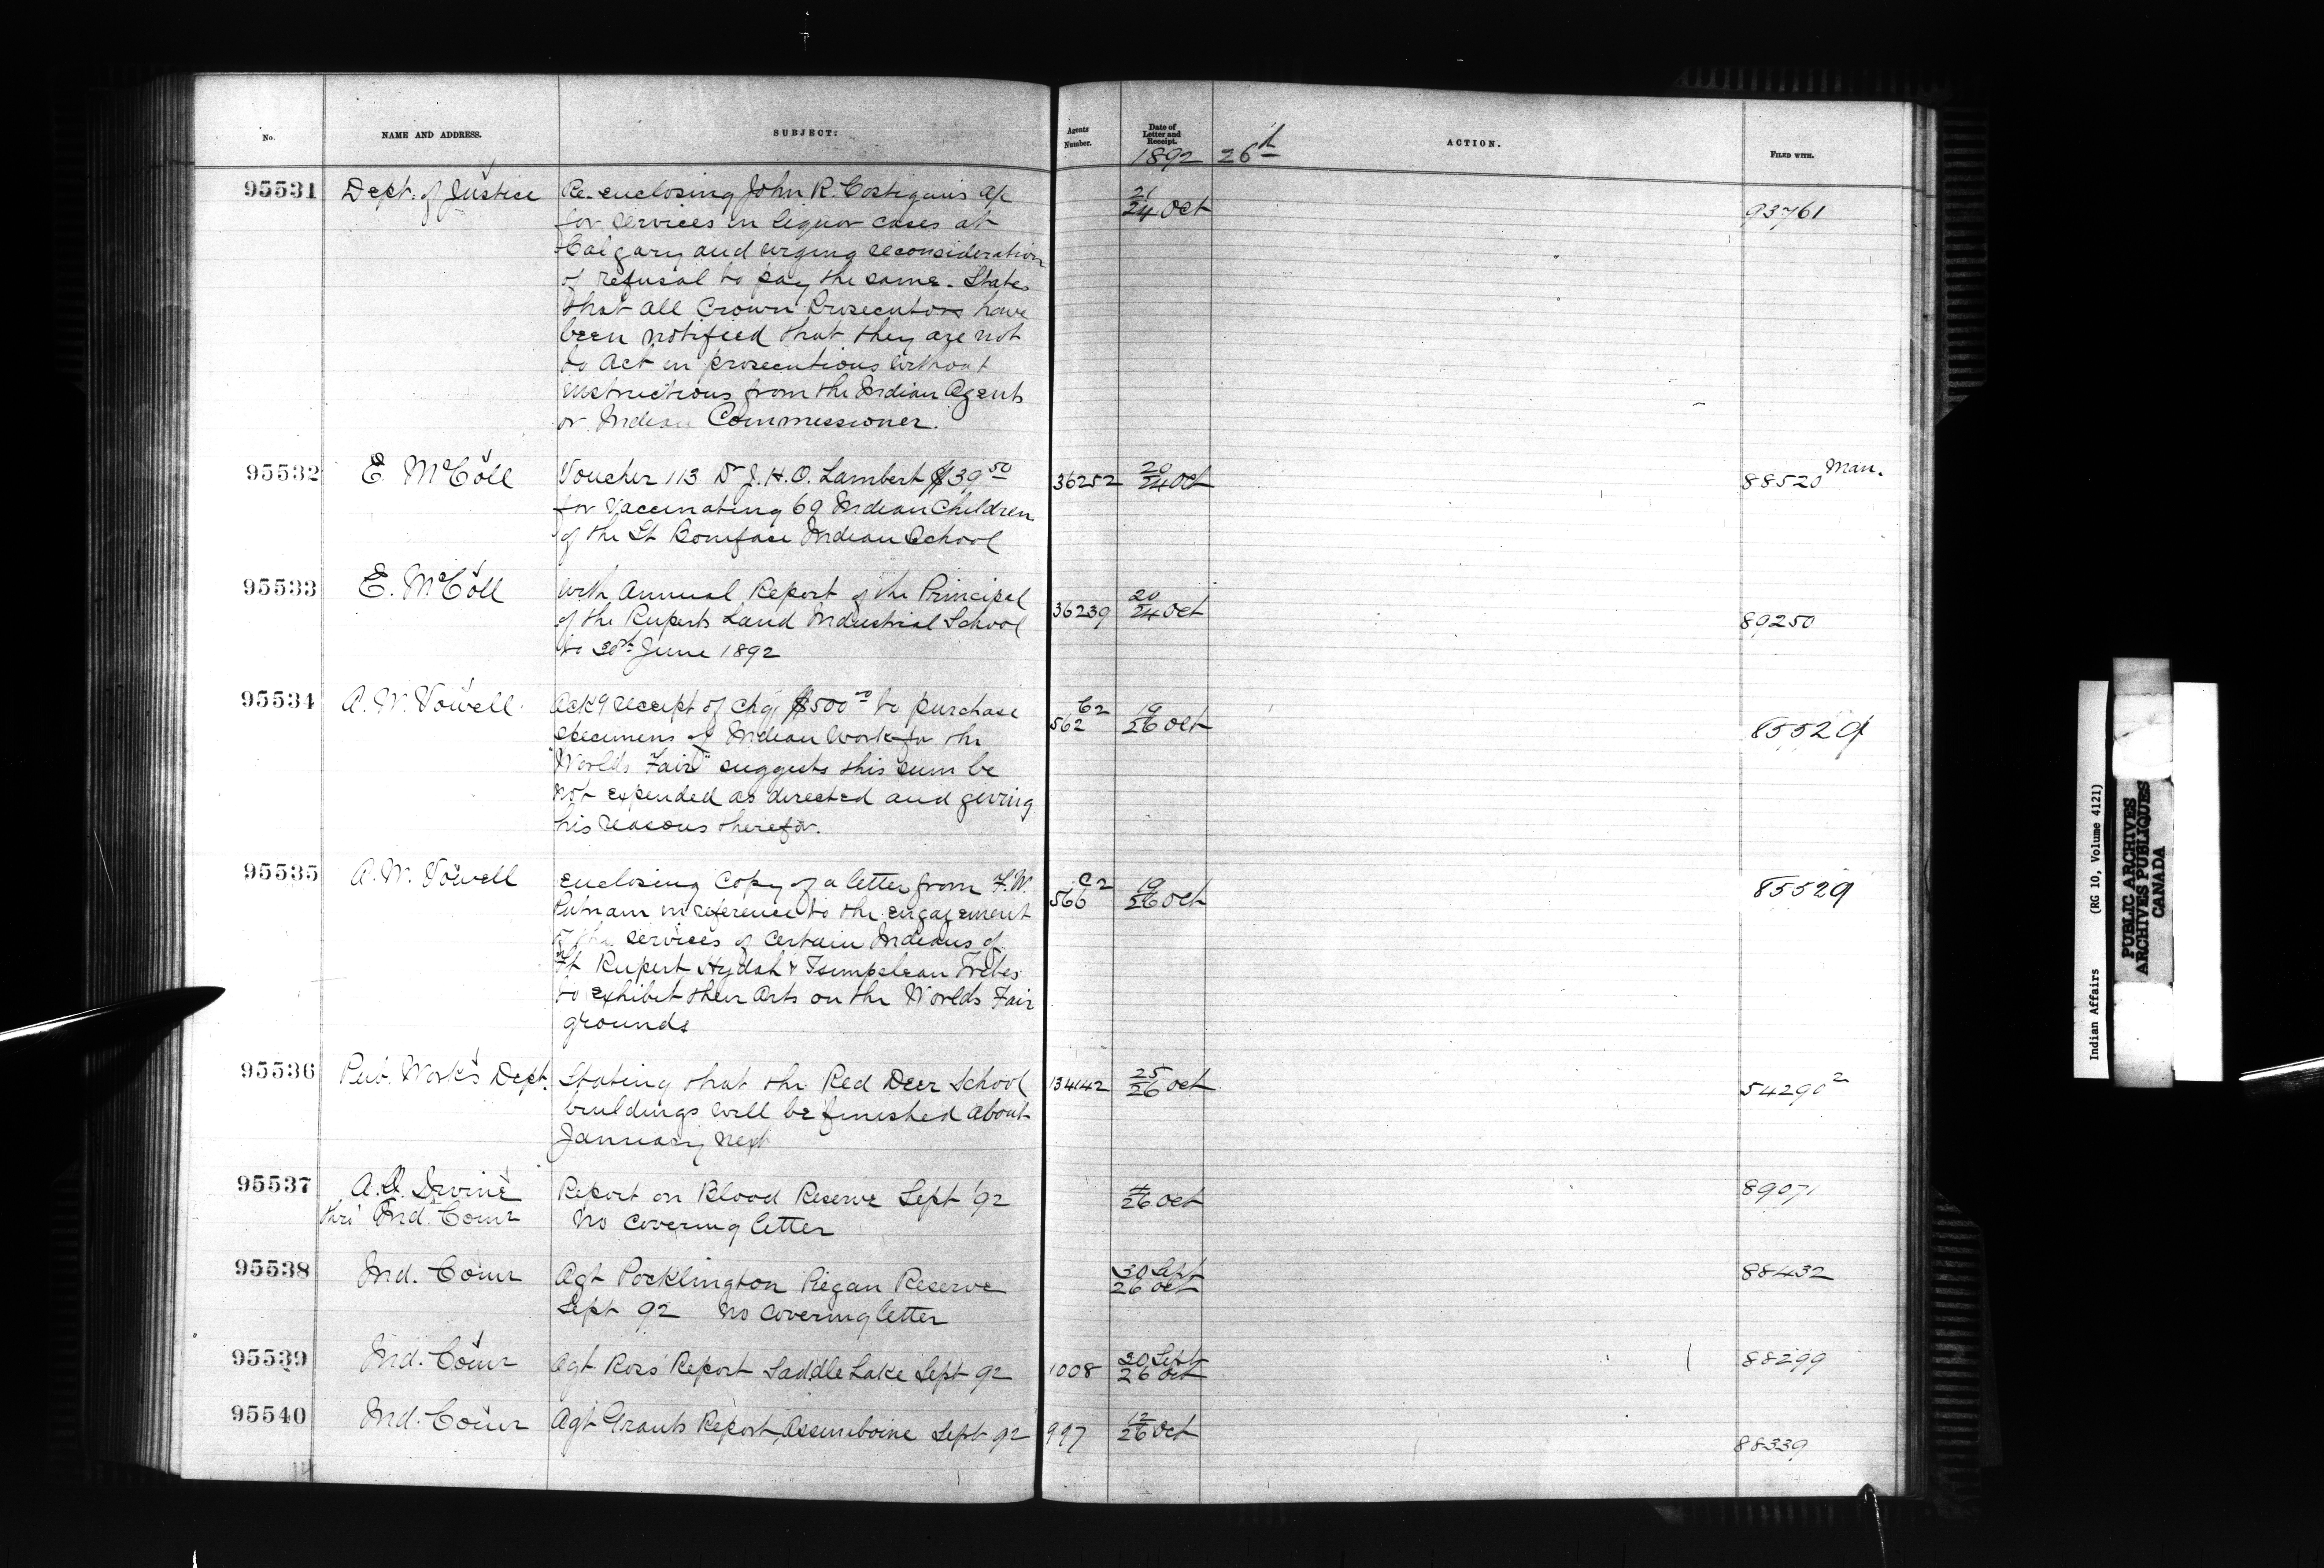 No.
NAME AND ADDRESS.
SUBJECT:
Agents Number.
Date of Letter and Receipt.
ACTION.
FILED WITH.
1892 26th
95531 Dept. of Justice Re-enclosing John R. Costigan's a/c 21/24 Oct 93761
for services in liquor cases at
Calgary and urging reconsideration
of refusal to pay the same. States
that all Crown Prosecutors have
been notified that they are not
to act in prosecutions without
instructions from the Indian Agents
or Indian Commissioner.
95532 E. McColl Voucher 113 Dr J. H. O. Lambert $39 50 36252 20/24 Oct 88520 Man.
for Vaccinating 69 Indian Children
of the St Boniface Indian School
95533 E. McColl With Annual Report of the Principal 36239 20/24 Oct 89250
of the Ruperts Land Industrial School
to 30th June 1892
95534 A. W. Vowell Ackg receipt of chq $500 00 to purchase C2 562 19/26 Oct 85529
specimens of Indian Work for the
"Worlds Fair" suggests this sum be
not expended as directed and giving
his reasons therefor.
95535 A. W. Vowell Enclosing Copy of a letter from F. W. C2 566 19/26 Oct 85529
Putnam in reference to the engagement
of the services of certain Indians of
Ft Rupert Hydah & Tsimpsean Tribes
to exhibit their arts on the Worlds Fair
grounds
95536 Pub. Works Dept. Stating that the Red Deer School 134142 25/26 Oct 54290 2
buildings will be finished about
January next
95537 A. G. Irvine Report on Blood Reserve Sept '92 4/26 Oct 89071
thro' Ind. Comr No covering letter
95538 Ind. Comr Agt Pocklington Piegan Reserve 30 Sept 26 Oct 88432
Sept 92 No covering letter
95539 Ind. Comr Agt Ross' Report Saddle Lake Sept 92 1008 30 Sept 26 Oct 88299
95540 Ind. Comr Agt Grants Report Assiniboine Sept 92 997 12/26 Oct 88339
14
Indian Affairs (RG 10, Volume 4121)
PUBLIC ARCHIVES
ARCHIVES PUBLIQUES
CANADA